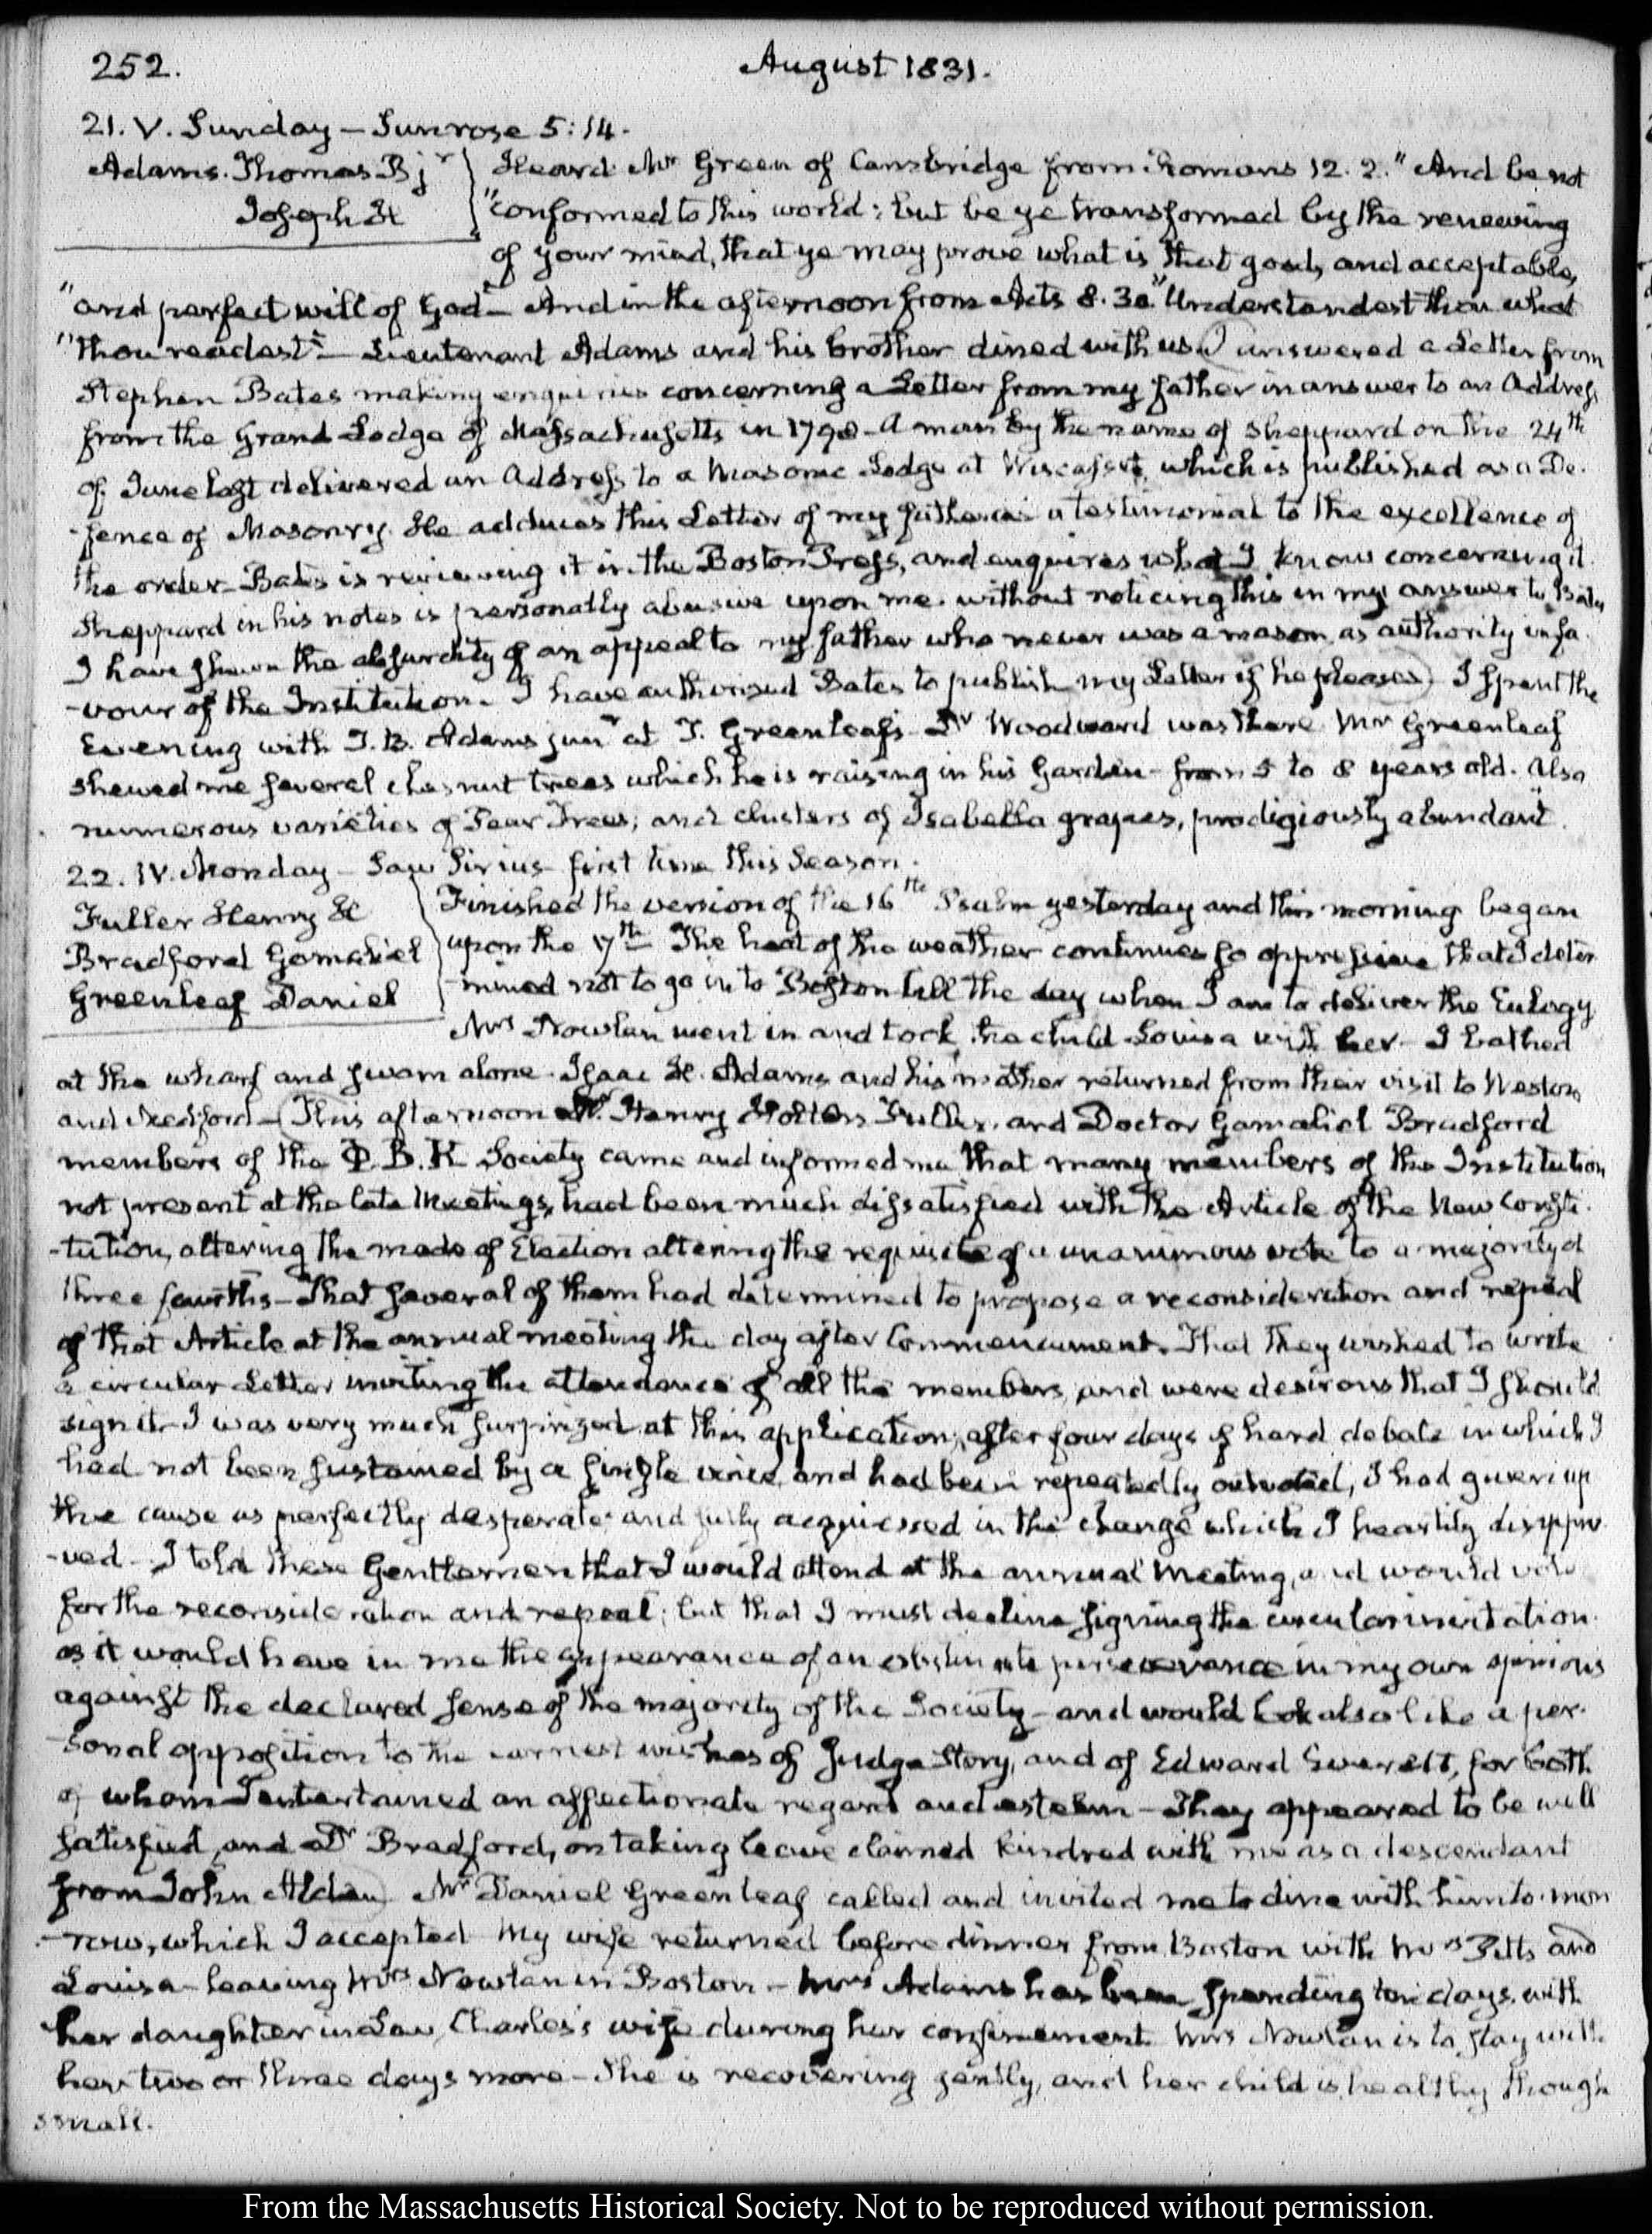 252.
August 1831.
21. V. Sunday – Sunrose 5:14.
Adams. Thomas B jr
Joseph H
Heard Mr Green of Cambridge from Romans 12. 2. " And be not
"conformed to this world: but be ye transformed by the renewing
of your mind, that ye may prove what is that good, and acceptable,
"and perfect will of God" – And in the afternoon from Acts 8. 30. "Understandest thou what
"thou readest" – Lieutenant Adams and his brother dined with us. I answered a Letter from
Stephen Bates making enquiries concerning a Letter from my father in answer to an Address
from the Grand Lodge of Massachusetts in 1798 – A man by the name of Sheppard on the 24th
of June last delivered an Address to a Masonic Lodge at Wiscasset, which is published as a De-
-fence of Masonry. He adduces this Letter of my father as a testimonial to the excellence of
the order – Bates is reviewing it in the Boston Press, and enquires what I know concerning it.
Sheppard in his notes is personally abusive upon me. without noticing this in my answer to Bates
I have shewn the absurdity of an appeal to my father who never was a mason, as authority in fa-
-vour of the Institution. I have authorised Bates to publish my Letter if he pleases. I spent the
Evening with T. B. Adams junr at T. Greenleaf's. Dr Woodward was there. Mr Greenleaf
shewed me several chesnut trees which he is raising in his Garden – from 5 to 8 years old. Also
numerous varieties of Pear Trees; and clusters of Isabella grapes, prodigiously abundant.
22. IV. Monday – Saw Sirius first time this Season.
Fuller Henry H
Bradford Gamaliel
Greenleaf Daniel
Finished the version of the 16th Psalm yesterday and this morning began
upon the 17th The heat of the weather continues so oppressive that I deter-
mined not to go in to Boston till the day when I am to deliver the Eulogy.
Mrs Nowlan went in and took the child Louisa with her – I bathed
at the wharf and swam alone – Isaac H. Adams and his mother returned from their visit to Weston
and Medford – This afternoon Mr. Henry Holton Fuller, and Doctor Gamaliel Bradford
members of the Φ. B. K Society came and informed me that many members of the Institution
not present at the late Meetings, had been much dissatisfied with the Article of the New Consti-
-tution, altering the mode of Election altering the requisite of a unanimous vote to a majority of
three fourths – That several of them had determined to propose a reconsideration and repeal
of that Article at the annual meeting the day after Commencement. That they wished to write
a circular Letter inviting the attendance of all the members, and were desirous that I should
sign it – I was very much surprized at this application, after four days of hard debate in which I
had not been sustained by a single voice, and had been repeatedly outvoted, I had given up
the cause as perfectly desperate and fully acquiesced in the change which I heartily disappro-
-ved – I told these Gentlemen that I would attend at the annual Meeting, and would vote
for the reconsideration and repeal; but that I must decline signing the circular invitation.
as it would have in me the appearance of an obstinate perseverance in my own opinions
against the declared sense of the majority of the Society – and would look also like a per-
-sonal opposition to the earnest wishes of Judge Story, and of Edward Everett, for both
of whom I entertained an affectionate regard and esteem – They appeared to be well
satisfied, and Dr Bradford, on taking leave claimed kindred with me as a descendant
from John Alden. Mr Daniel Greenleaf called and invited me to dine with him to-mor-
-row, which I accepted. My wife returned before dinner from Boston with Mrs Pitts and
Louisa – leaving Mrs Nowlan in Boston – Mrs Adams has been spending ten days with
her daughter in Law, Charles's wife during her confinement. Mrs Nowlan is to stay with
her two or three days more – She is recovering gently, and her child is healthy though
small.
From the Massachusetts Historical Society. Not to be reproduced without permission.